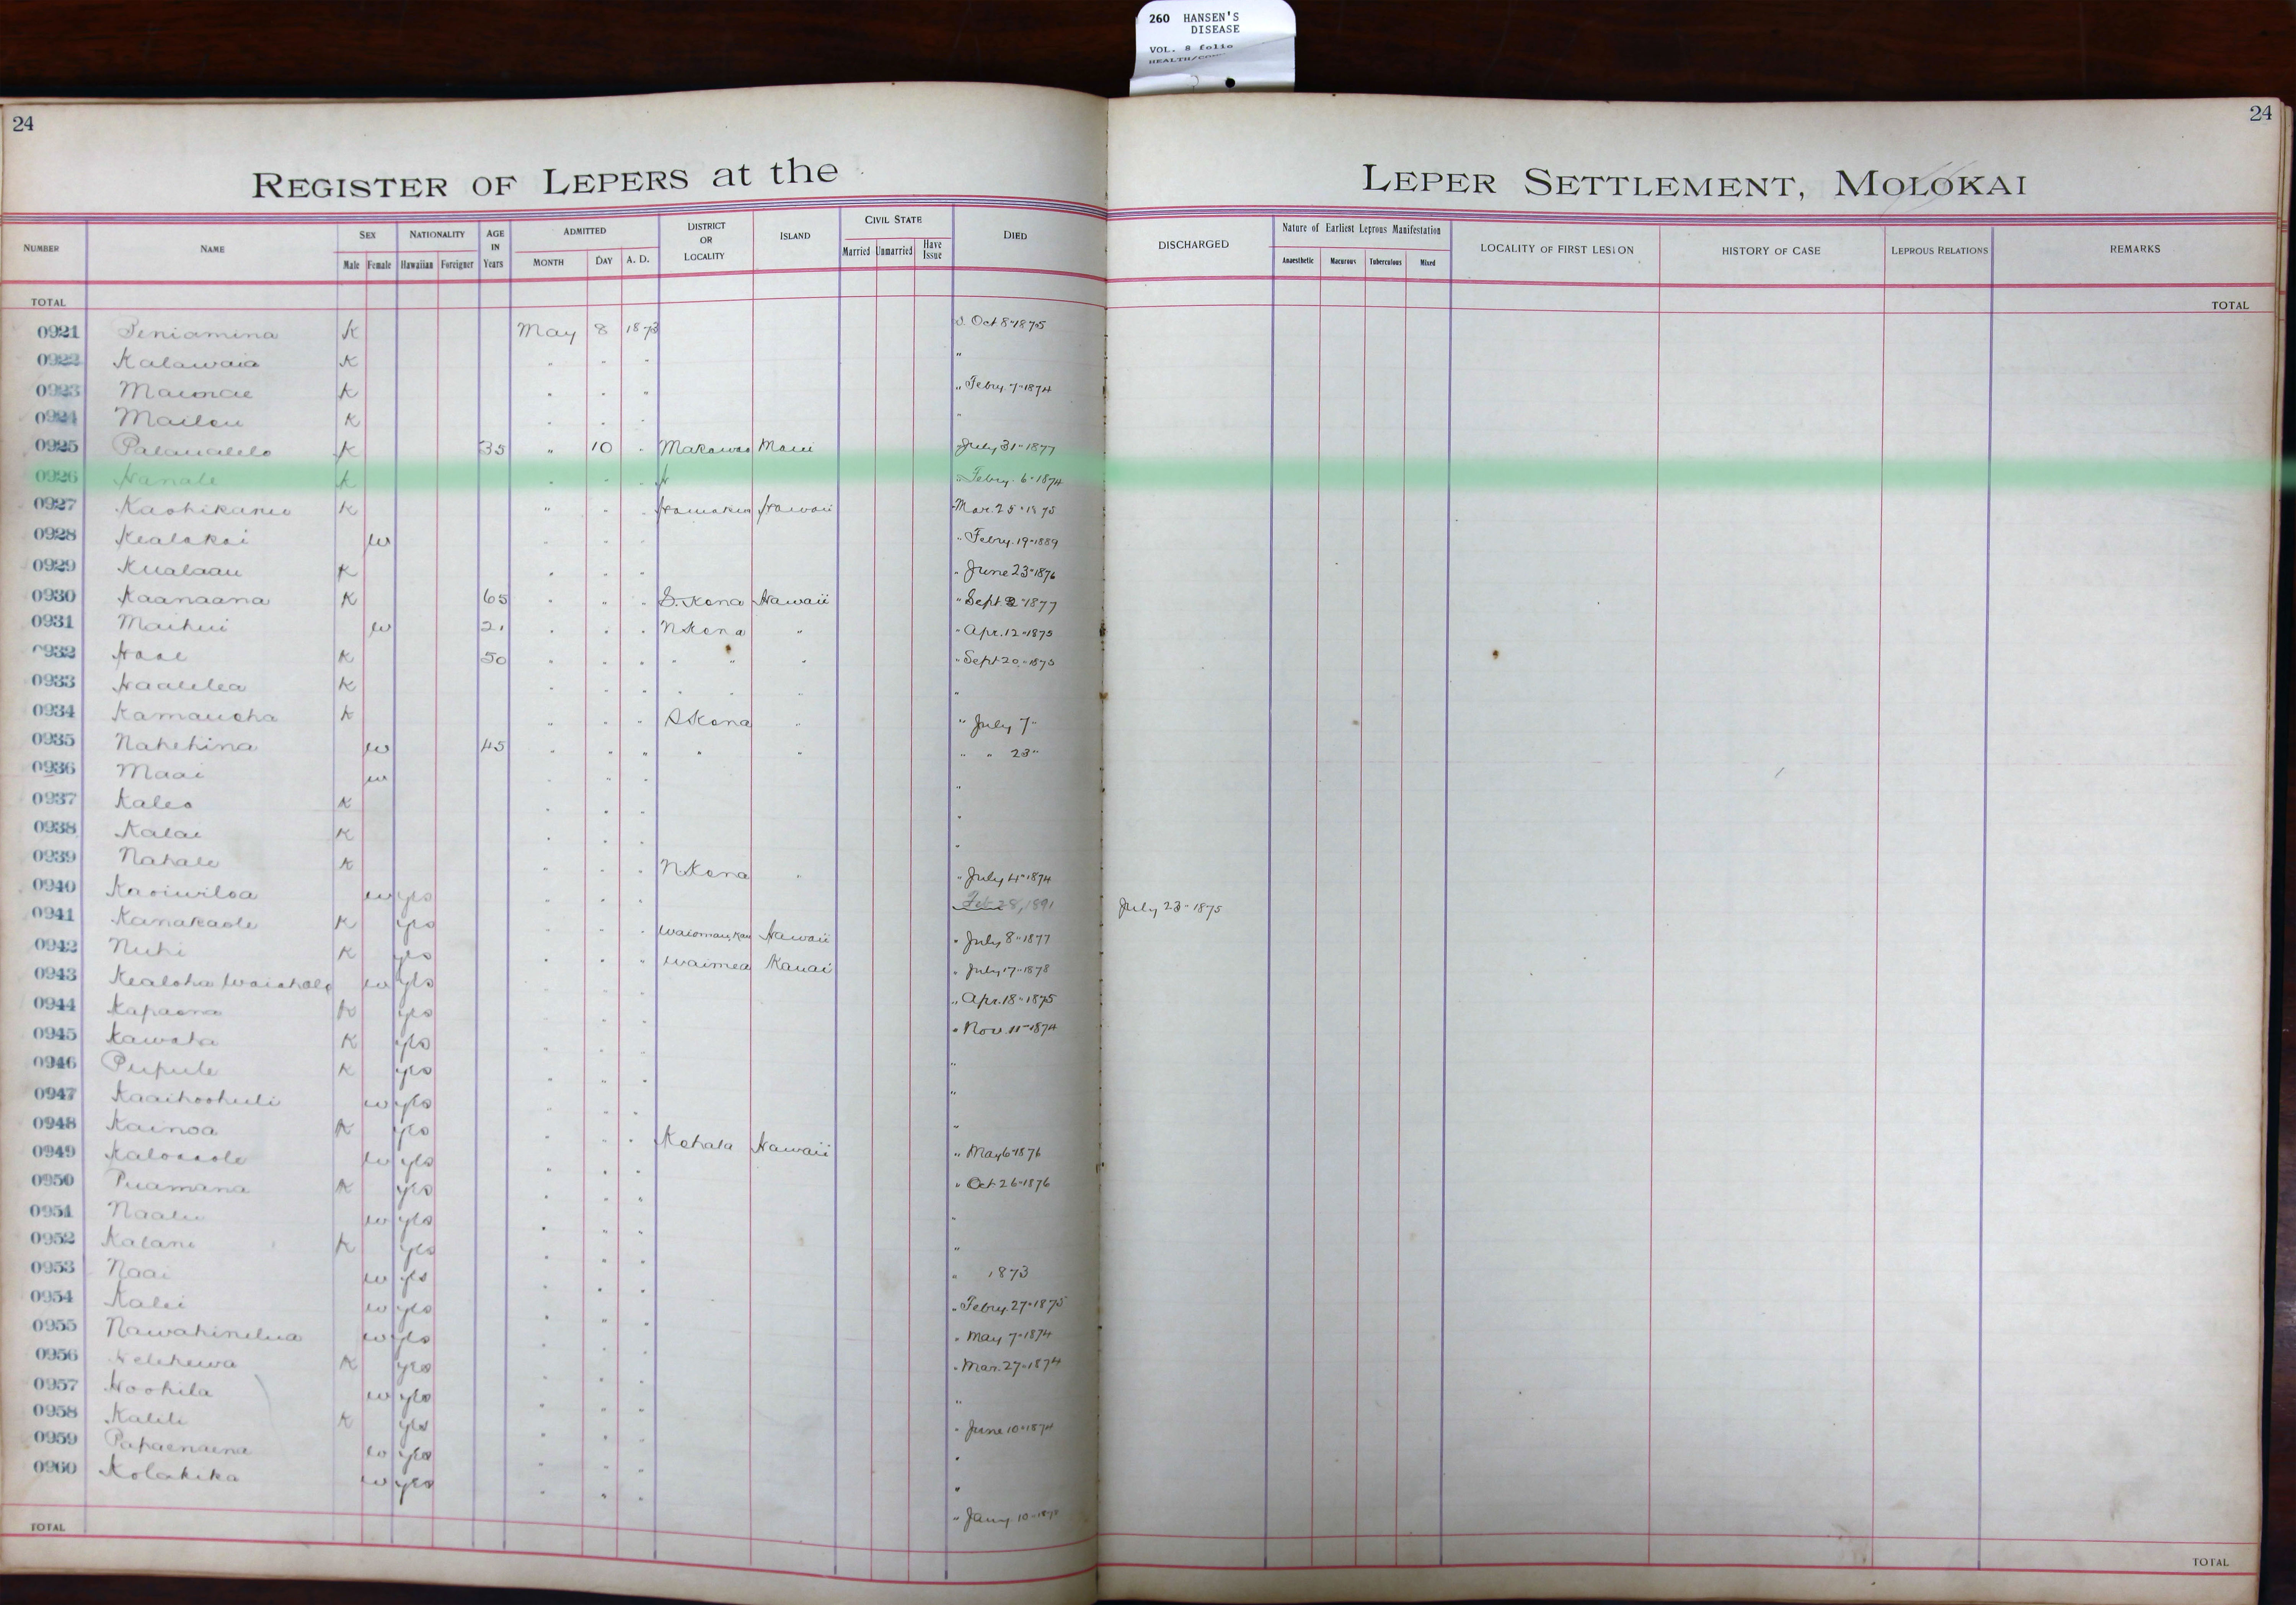 260 HANSEN'S
DISEASE
VOL. 8 folio
24
24
REGISTER OF LEPERS at the
LEPER SETTLEMENT, MOLOKAI
NUMBER NAME SEX NATIONALITY AGE IN Years ADMITTED DISTRICT OR LOCALITY ISLAND CIVIL STATE DIED DISCHARGED Nature of Earliest Leprous Manifestation LOCALITY OF FIRST LESION HISTORY OF CASE LEPROUS RELATIONS REMARKS
Male Female Hawaiian Foreigner MONTH DAY A. D. Married Unmarried Have Issue Anaesthetic Macurous Tuberculous Mixed
TOTAL TOTAL
0921 Peniamina K May 8 1873 Oct 8" 1875
0922 Kalawaia K " " " "
0923 K " " " " Febry. 7" 1874
0924 K " " " "
0925 K 35 " 10 " Makawao Maui July 31" 1877
0926 Hanale K " " " Febry. 6" 1874
0927 K " " " Hamakua Hawaii Mar. 25" 1875
0928 Kealakai w " " " " Febry. 19" 1889
0929 Kualaau K " " " " June 23" 1876
0930 Kaanaana K 65 " " " S. Kona Hawaii " Sept 2" 1877
0931 Maihui w 21 " " " N Kona " " Apr. 12" 1875
0932 K 50 " " " " " " " Sept 20" 1875
0933 Haalilea K " " " " " " "
0934 Kamauoha K " " " S Kona " " July 7"
0935 Nahehina w 45 " " " " " " " 23"
0936 Maai w " " " "
0937 Kaleo K " " " "
0938 Kalai K " " " "
0939 Nahale K " " " N Kona " " July 4" 1874
0940 Kaoiwiloa w yes " " " Feb 28, 1891 July 23" 1875
0941 Kanakaole K yes " " " Hawaii " July 8" 1877
0942 Nuhi K yes " " " Waimea Kauai " July 17" 1878
0943 w yes " " " " Apr. 18" 1875
0944 Kapaona K yes " " " " Nov. 11" 1874
0945 Kawaha K yes " " " "
0946 Pupule K yes " " " "
0947 Kaaihoohuli w yes " " " "
0948 Kainoa K yes " " " Kohala Hawaii " May 6" 1876
0949 w yes " " " " Oct 26" 1876
0950 Puamana K yes " " " "
0951 w yes " " " "
0952 Kalani K yes " " " " 1873
0953 Naai w yes " " " " Febry. 27" 1875
0954 Kalei w yes " " " " May 7" 1874
0955 Nawahinelua w yes " " " " Mar. 27" 1874
0956 K yes " " " "
0957 Hoohila w yes " " " " June 10" 1874
0958 Kalili K yes " " " "
0959 Papaenaena w yes " " " "
0960 Kolakika w yes " " " " Jany. 10"
TOTAL TOTAL